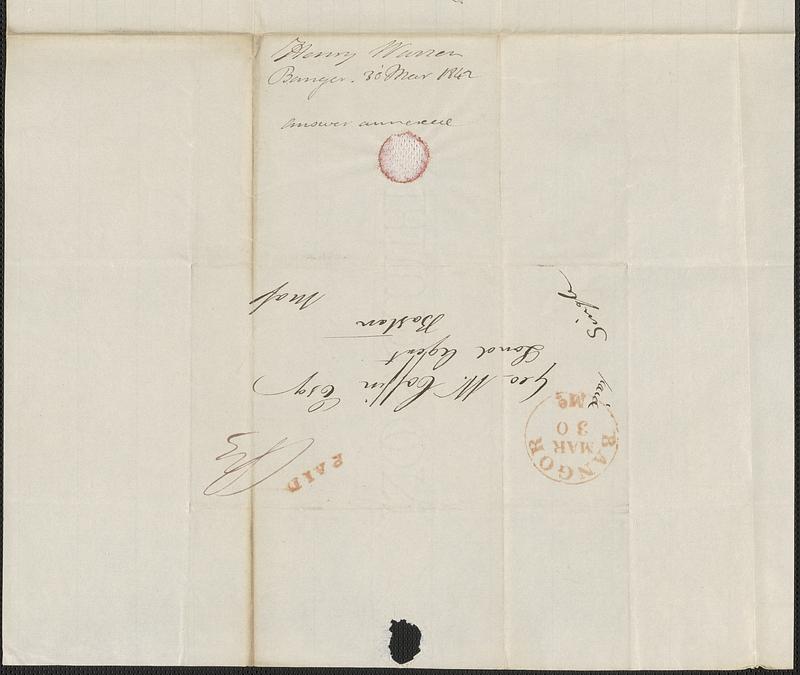 Henry Warren
Bangor. 30 Mar 1842
answer annexed
Geo. W. Coffin Esq
Land Agent
Boston
Mass
Paid
Single
BANGOR
MAR
30
Me
PAID